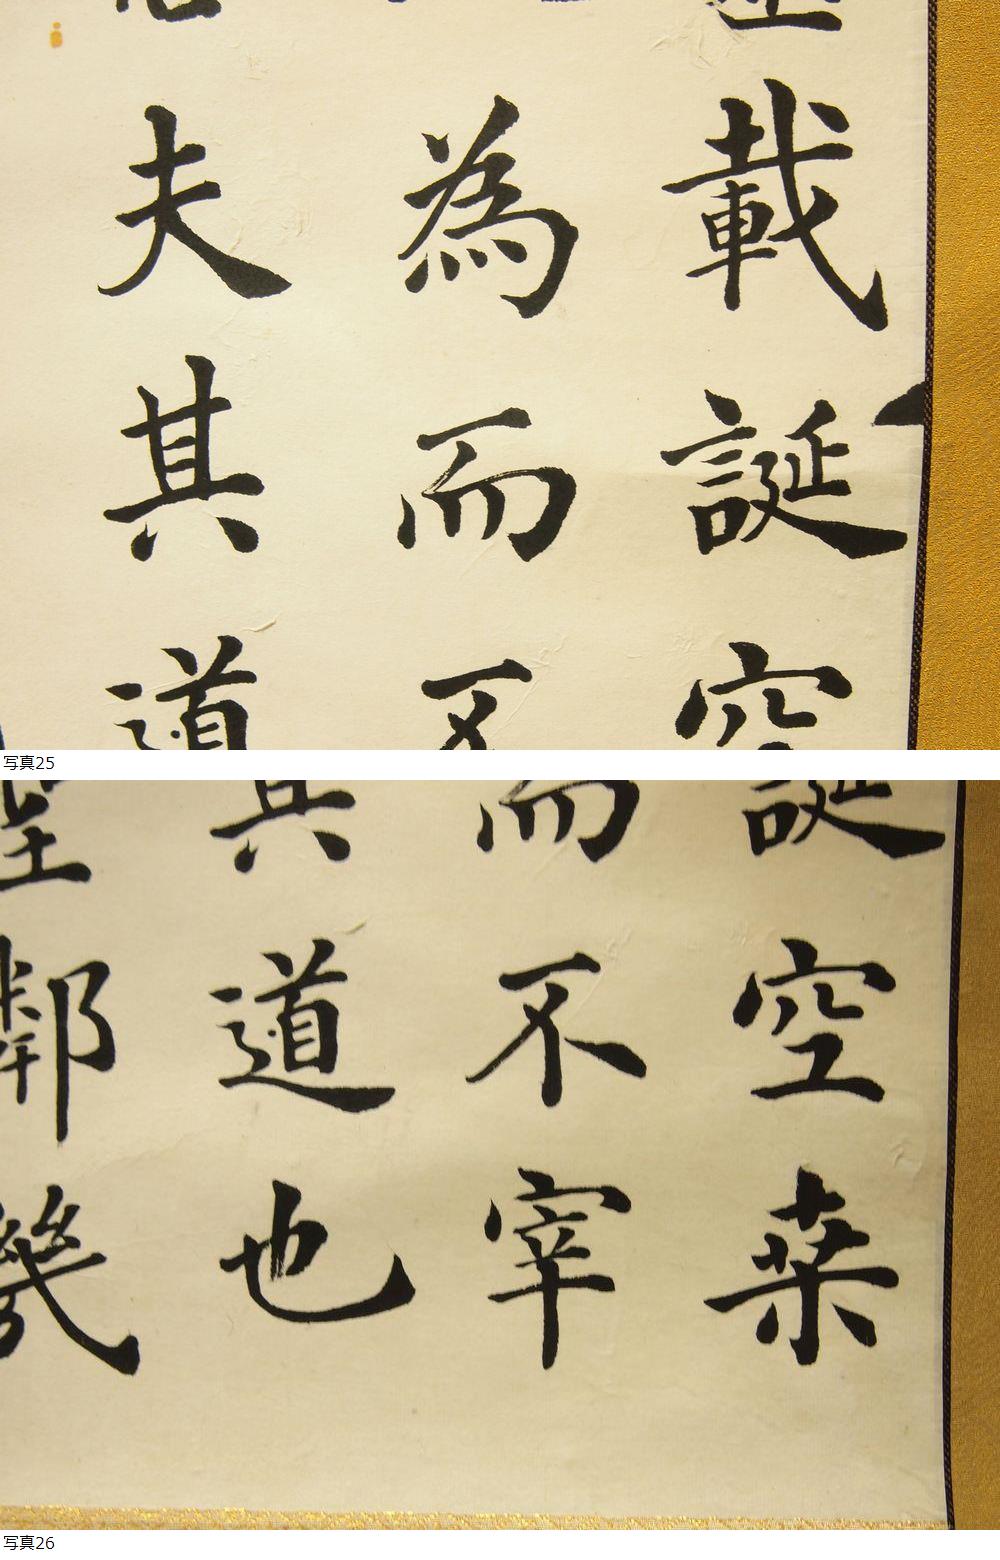 載誕空桒
為而不宰
夫其道也
写真25
誕空桒
而不宰
其道也
聖鄰幾
写真26